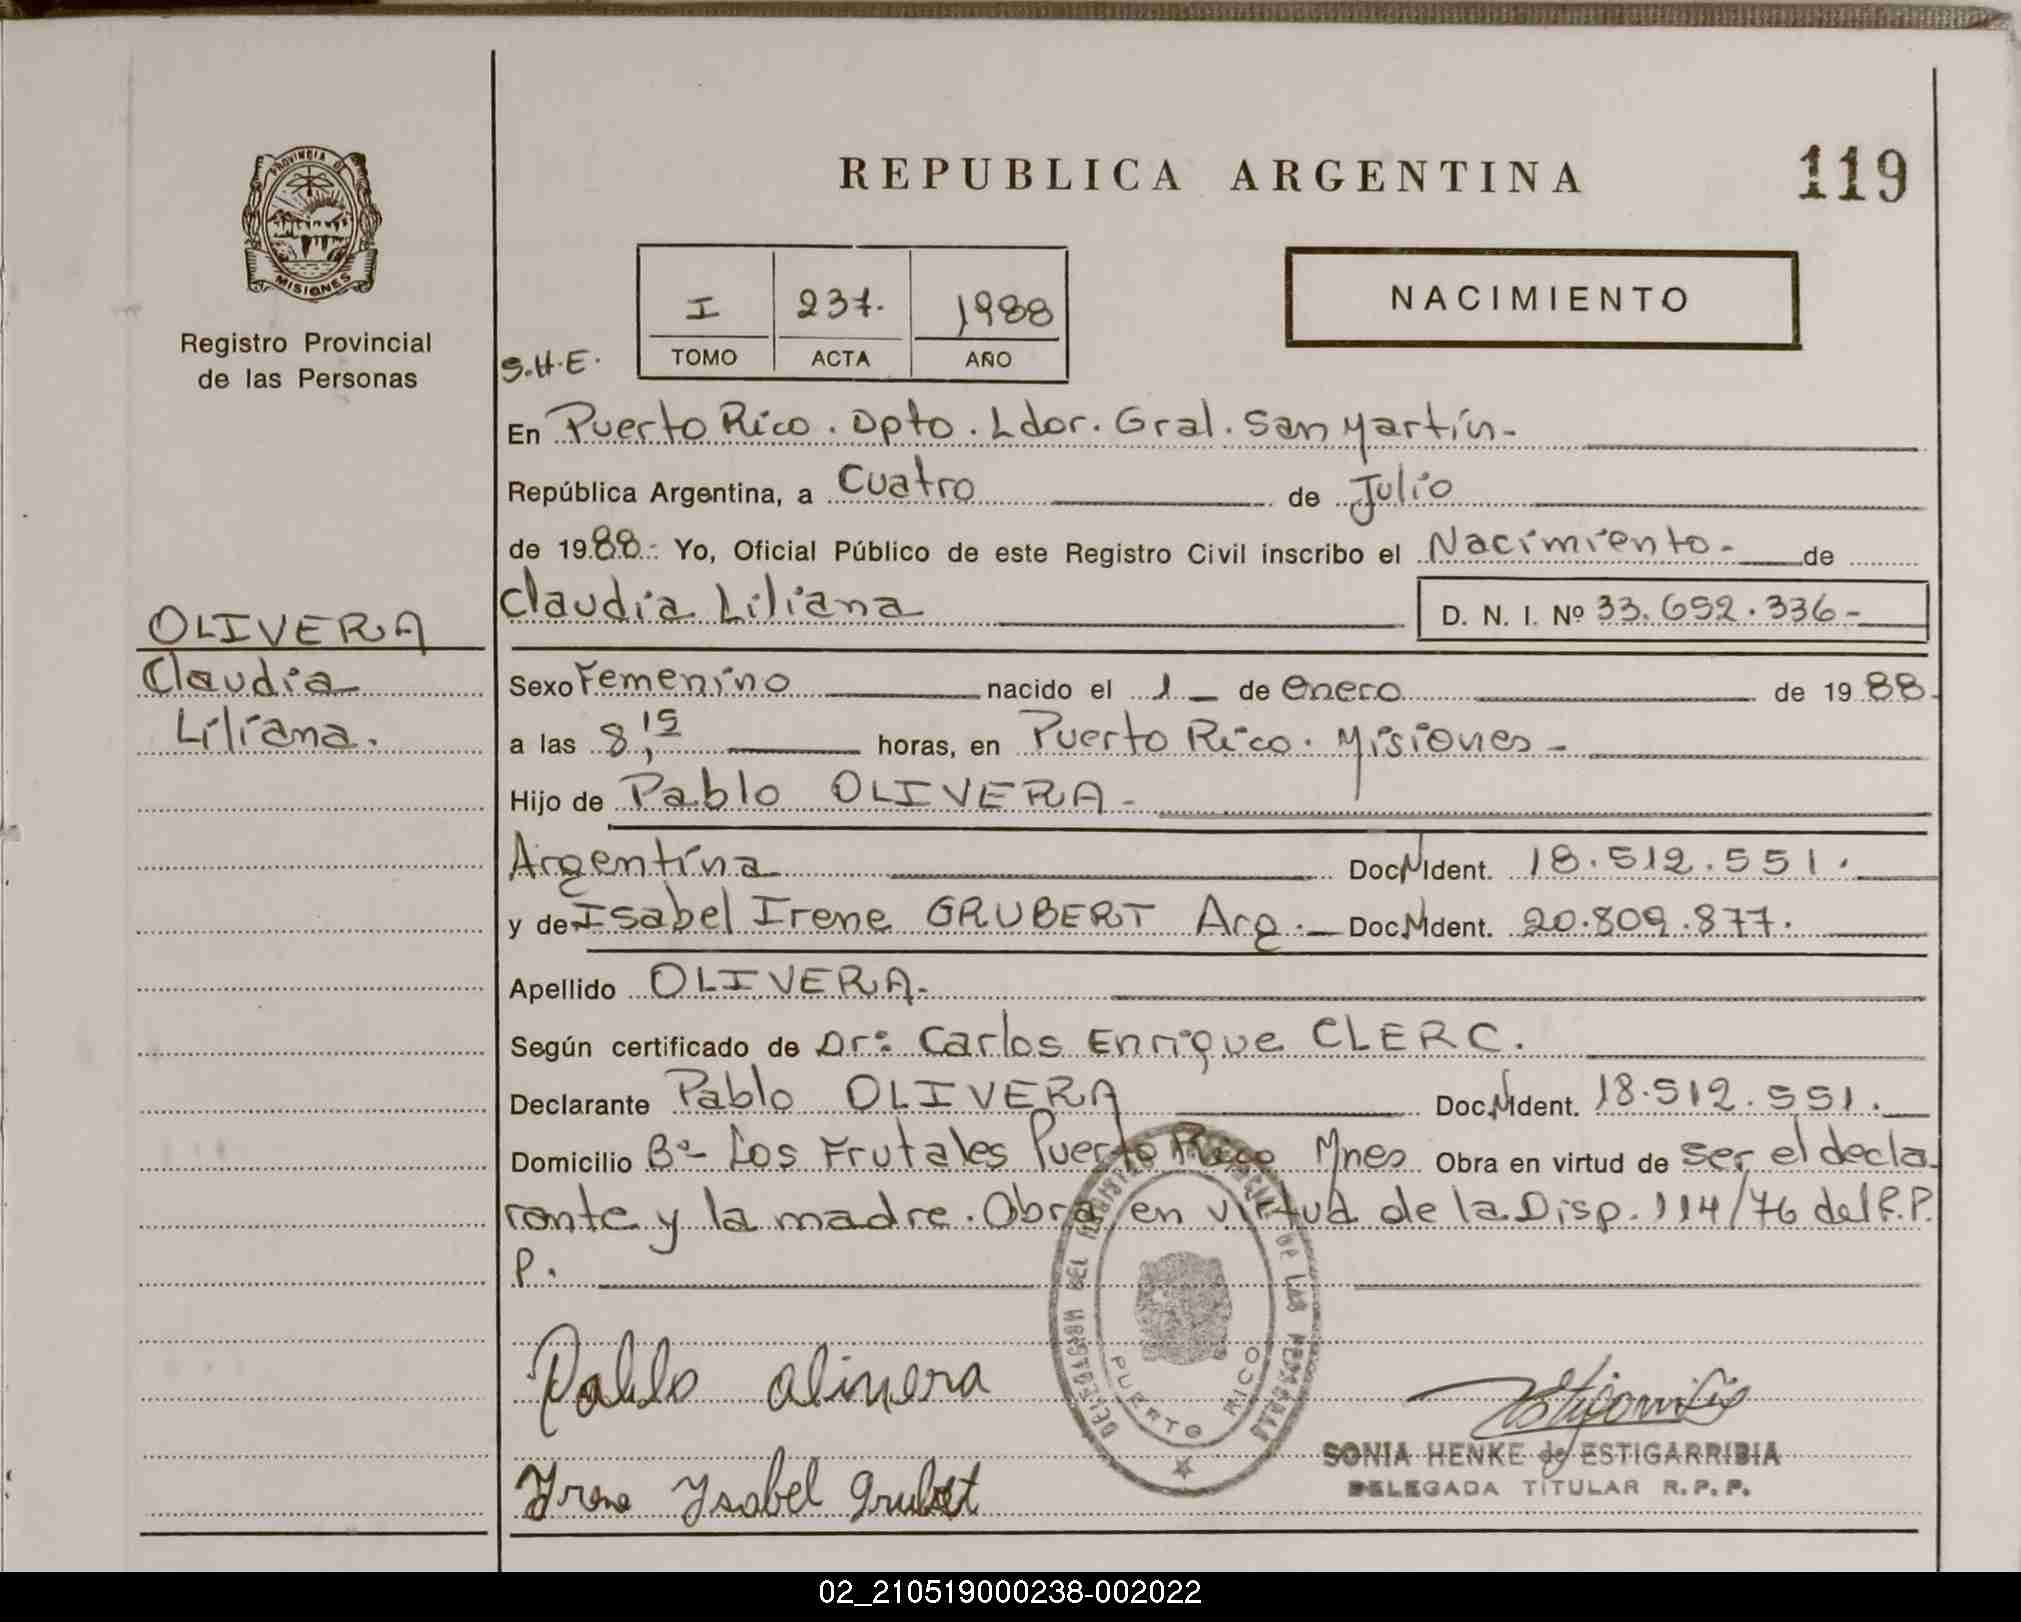 REPUBLICA ARGENTINA
119
PROVINCIA DE
MISIONES
Registro Provincial
de las Personas
I 237. 1988
TOMO ACTA AÑO
NACIMIENTO
S.H.E.
En Puerto Rico. Dpto. Ldor. Gral. San Martín-
República Argentina, a Cuatro de Julio
de 1988.- Yo, Oficial Público de este Registro Civil inscribo el Nacimiento- de
Claudia Liliana D. N. I. Nº 33.692.336-
OLIVERA
Claudia
Liliana.
Sexo Femenino nacido el 1 de enero de 1988.
a las 8,15 horas, en Puerto Rico. Misiones-
Hijo de Pablo OLIVERA-
Argentina Doc.N.Ident. 18.512.551.
y de Isabel Irene GRUBERT Arg.- Doc.N.Ident. 20.809.877.
Apellido OLIVERA.-
Según certificado de Dr: Carlos Enrique CLERC.
Declarante Pablo OLIVERA Doc.N.Ident. 18.512.551.
Domicilio Bº- Los Frutales Puerto Rico Mnes Obra en virtud de ser el decla-
rante y la madre. Obra en virtud de la Disp. 114/76 del R.P.
P.
DELEGACION DEL REGISTRO PROVINCIAL DE LAS PERSONAS
PUERTO RICO
Pablo Olivera
Yrene Ysabel Grubert
SONIA HENKE de ESTIGARRIBIA
DELEGADA TITULAR R.P.P.
02_210519000238-002022